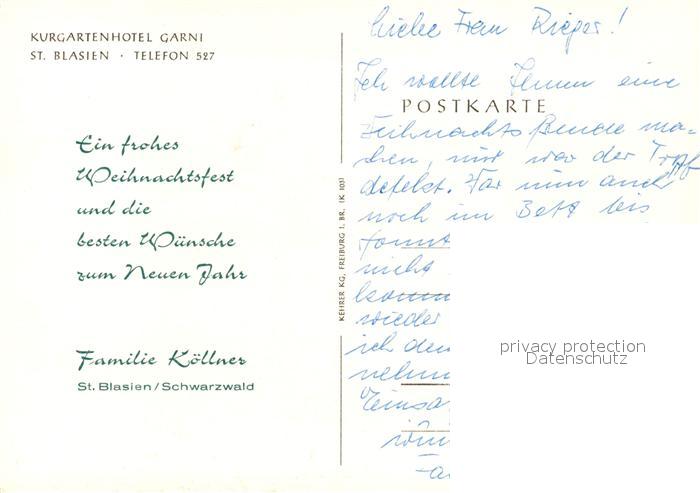 KURGARTENHOTEL GARNI
ST. BLASIEN · TELEFON 527
Ein frohes
Weihnachtsfest
und die
besten Wünsche
zum Neuen Jahr
Familie Köllner
St. Blasien/Schwarzwald
KEHRER KG, FREIBURG I. BR. (K 103)
POSTKARTE
Frau Rieger!
Ich wollte Ihnen eine
Weihnachts freude ma-
chen, nur war der
defekt. War nun auch
noch im Bett bis
nicht
wieder
ich
privacy protection
Datenschutz